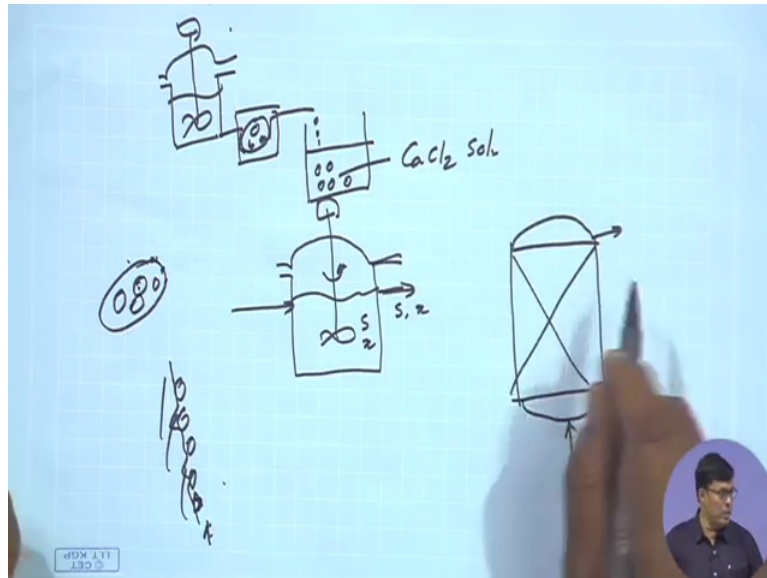 CaCl2 Soln
S
x
S, x
© CET
I.I.T. KGP